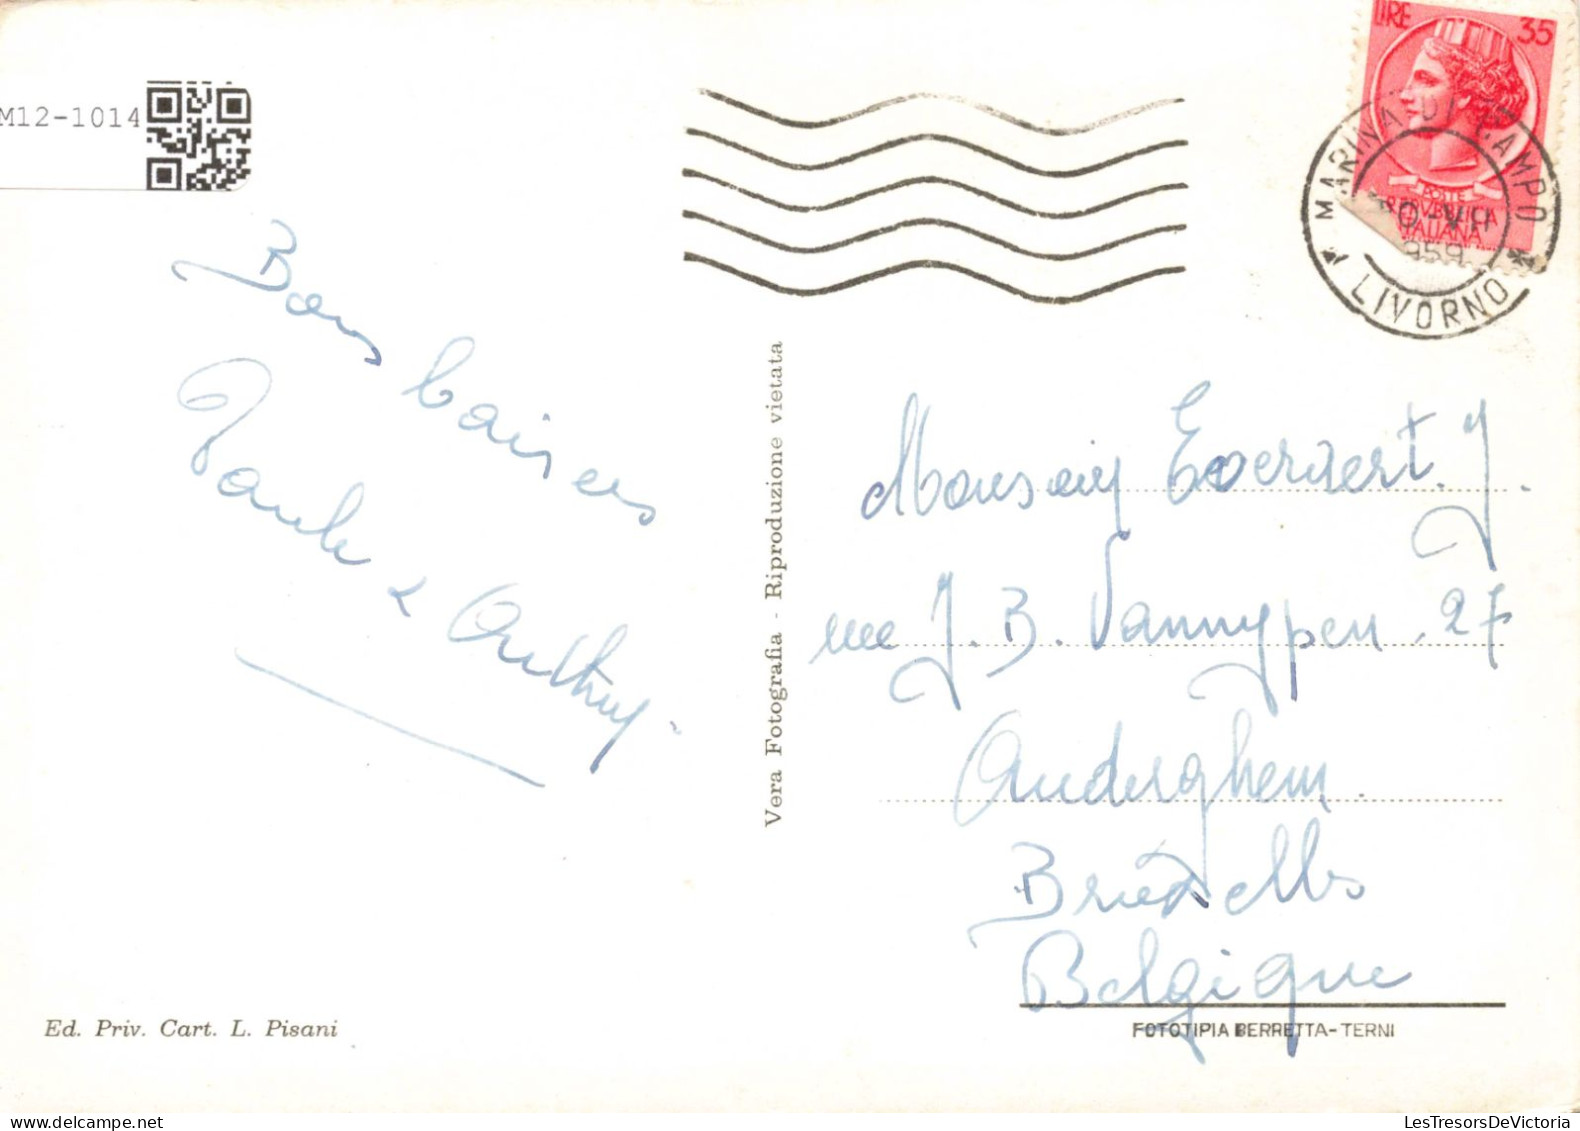 M12-1014
LIRE 35
POSTE
REPVBBLICA
ITALIANA
MARINA DI CAMPO
VII
959
* LIVORNO *
Bons baisers
Paule & Anthny.
Vera Fotografia - Riproduzione vietata
Monsieur Evervaert. J.
rue J. B. Vannypen. 27
Auderghem.
Bruxelles
Belgique
Ed. Priv. Cart. L. Pisani
FOTOTIPIA BERRETTA-TERNI
LesTresorsDeVictoria